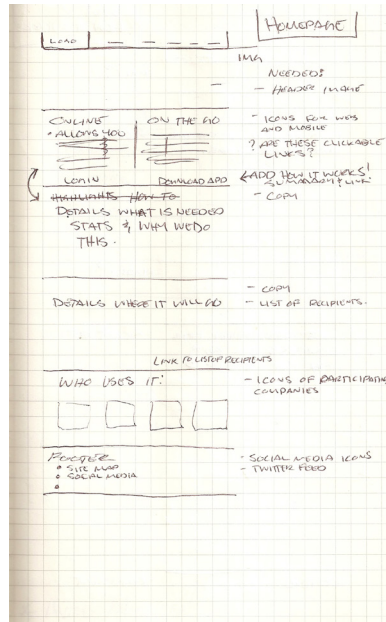 HOMEPAGE
LOGO
IMG
NEEDED:
- HEADER IMAGE
ONLINE
• ALLOWS YOU
ON THE GO
- ICONS FOR WEB
AND MOBILE
? ARE THESE CLICKABLE
LINKS?
LOGIN
DOWNLOAD APP
ADD HOW IT WORKS!
SUMMARY & LINK
- COPY
HIGHLIGHTS HOW TO
DETAILS WHAT IS NEEDED
STATS & WHY WE DO
THIS.
DETAILS WHERE IT WILL GO
- COPY
- LIST OF RECIPIENTS.
LINK TO LIST OF RECIPIENTS
WHO USES IT:
- ICONS OF PARTICIPATING
COMPANIES
FOOTER
• SITE MAP
• SOCIAL MEDIA
- SOCIAL MEDIA ICONS
- TWITTER FEED